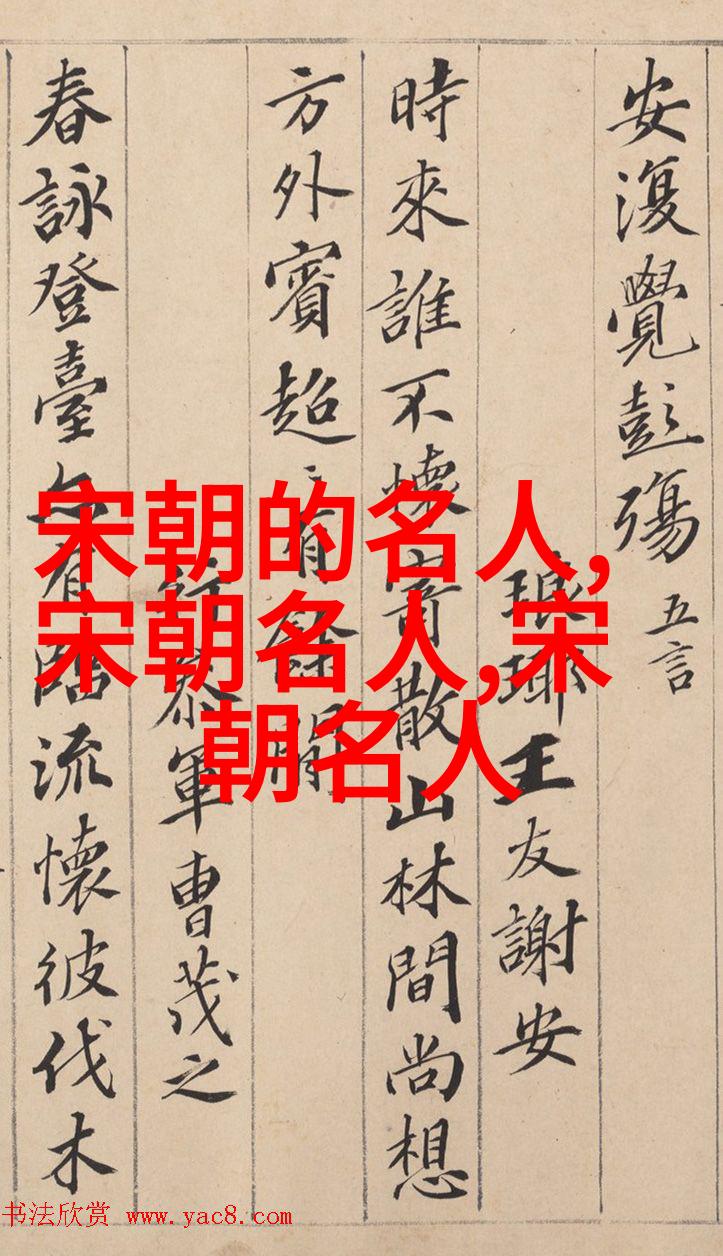 安復覺彭殤 五言
琅瑘王友謝安
時來誰不懷寄散山林間尚想
方外賓超〻有餘閒
行參軍曹茂之
春詠登臺亦有臨流懷彼伐木
宋朝的名人,
宋朝名人,宋
朝名人
书法欣赏 www.yac8.com